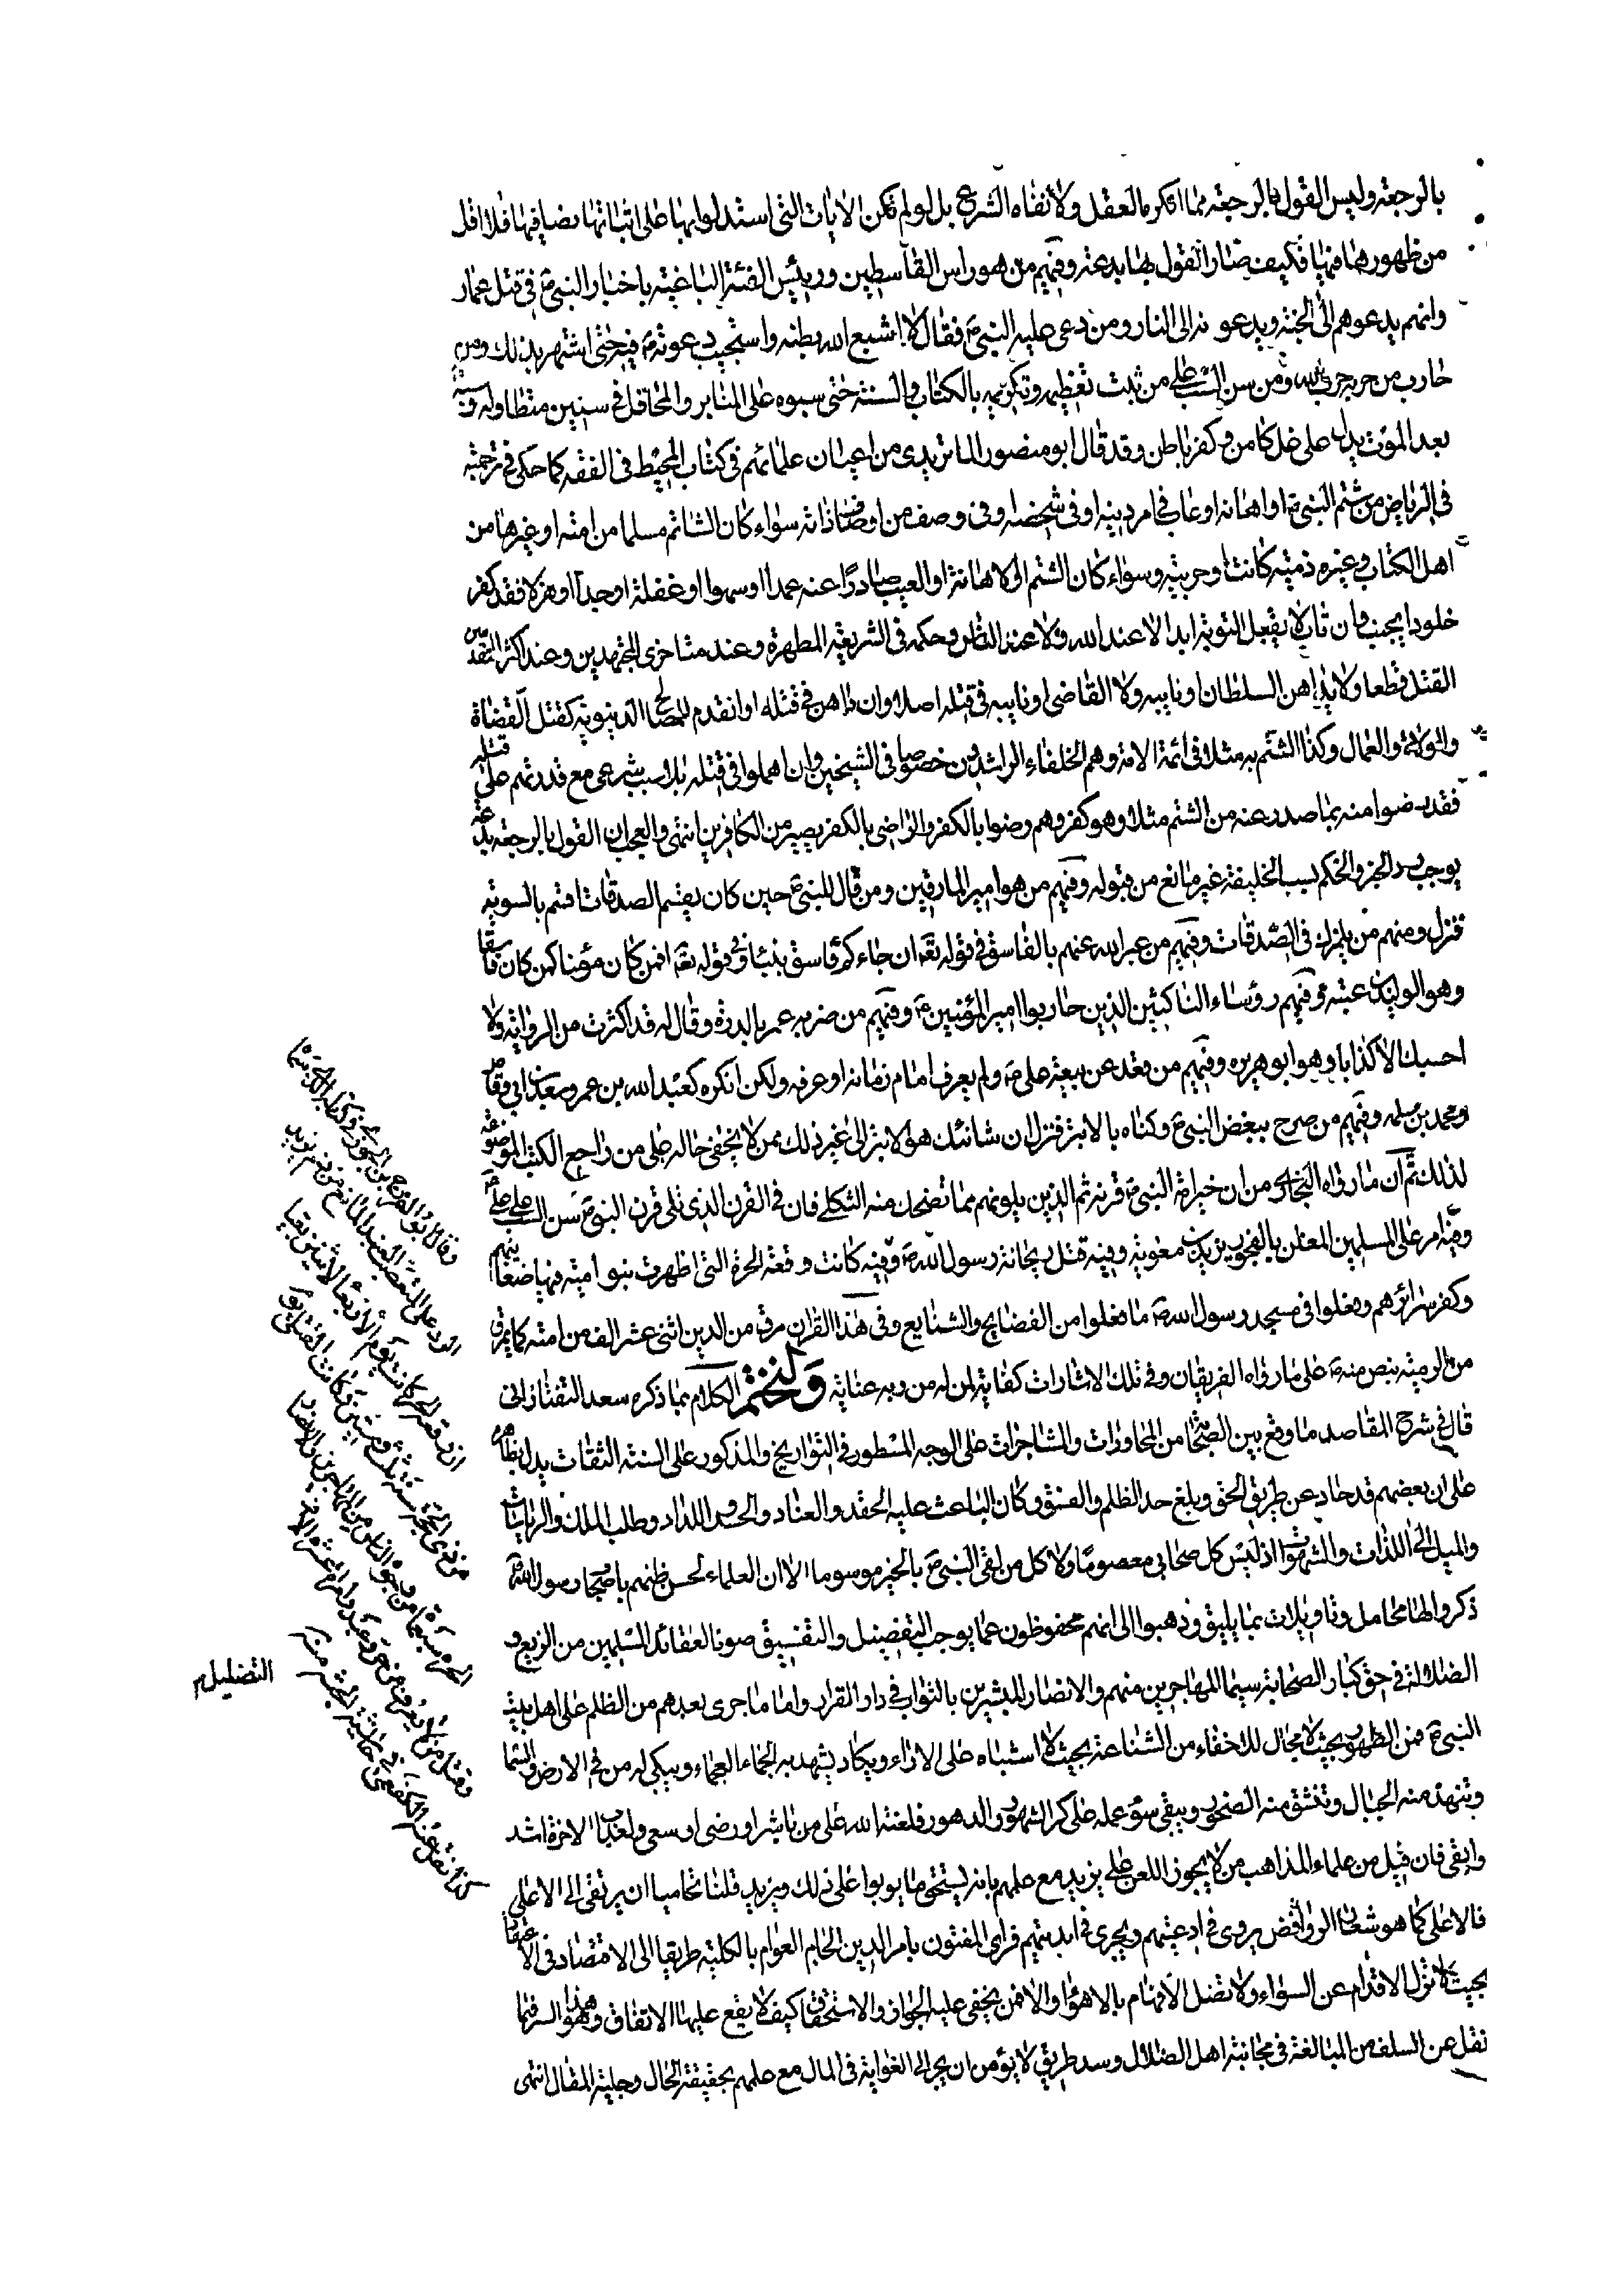 بالرجعة وليس القول بالرجعة مما انكره العقل ولا نفاه الشرع بل لو لم تكن الايات التي استدلوا بها على اثباتها نصا فيها فلا اقل
من ظهورها فيها فكيف صار القول بها بدعة ومنهم من هو راس القاسطين ورئيس الفئة الباغية باخبار النبي ص في قتل عمار
وانهم يدعوهم الى الجنة ويدعونه الى النار ومن دعى عليه النبي ص فقال لا اشبع الله بطنه واستجيب دعوته ص فيه حتى اشتهر بذلك ومن
حارب من حربه حرب الله ومن سن السب على من ثبت تعظيمه وتكريمه بالكتاب والسنة حتى سبوه على المنابر والمحافل في سنين متطاولة
بعد الموت يدل على غل كامن وكفر باطن وقد قال ابو منصور الماتريدي من اعيان علمائهم في كتاب المحيط في الفقه كما حكى في ترجمته
في الرياض من شتم النبي ص او اهانه او عابه في امر دينه او في شخصه او في وصف من اوصاف ذاته سواء كان الشاتم مسلما من امته او غيرها من
اهل الكتاب وغيره ذمية كانت او حربية وسواء كان الشتم او الاهانة او العيب صادرا عنه عمدا او سهوا او غفلة او جدا او هزلا فقد كفر
خلودا بحيث ان تاب لا يقبل التوبة ابدا لا عند الله ولا عند الناس وحكمه في الشريعة المطهرة وعند متاخرى المجتهدين وعند اكثر المتقدمين
القتل قطعا ولا يداهن السلطان او نايبه ولا القاضي او نايبه في قتله اصلا وان داهن في قتله او انقدم للمصالح الدنيوية كقتل القضاة
والولاة والعمال وكذا الشتم به مثلا في ائمة الامة وهم الخلفاء الراشدين خصوصا في الشيخين وان اهملوا في قتله بلا سبب شرعي مع قدرتهم على قتله
فقد رضوا منه بما صدر عنه من الشتم مثلا وهو كفر وهم رضوا بالكفر والراضي بالكفر يصير من الكافرين انتهى والعجب ان القول بالرجعة بدعة
يوجب رد الخبر والحكم بسب الخليفة غير مانع من قبوله ومنهم من هو امير المارقين ومن قال للنبي ص حين كان يقسم الصدقات اقسم بالسوية
فنزل ومنهم من يلمزك في الصدقات ومنهم من عبر الله عنهم بالفاسق في قوله تعه ان جاءكم فاسق بنبا وفي قوله تعه افمن كان مؤمنا كمن كان فاسقا
وهو الوليد بن عتبة ومنهم رؤساء الناكثين الذين حاربوا امير المؤمنين ع ومنهم من ضربه عمر بالدرة وقال له قد اكثرت من الرواية ولا
احسبك الا كذابا وهو ابو هريره ومنهم من قعد عن بيعة علي ع ولم يعرف امام زمانه او عرفه ولكن انكره كعبد الله بن عمر وسعد بن ابي وقاص
ومحمد بن مسلمه ومنهم من صرح ببغض النبي ص وكناه بالابتر فنزل ان شانئك هو الابتر الى غير ذلك ممن لا يخفى حاله على من راجع الكتب الموضوعة
لذلك ثم ان ما رواه البخاري من ان خير امة النبي ص قرنه ثم الذين يلونهم مما تضحك منه الثكلى فان في القرن الذي تلي قرن النبي ص سن السب على علي ع
وفيه امر على المسلمين المعلن بالفجور يزيد بن معوية وفيه قتل ريحانة رسول الله ص وفيه كانت وقعة الحرة التي اظهرت بنو امية فيها ضغائنهم
وكفر سرائرهم وفعلوا في مسجد رسول الله ص ما فعلوا من الفضايح والشنايع وفي هذا القران مرق من الدين اثنى عشر الف من امته كما يمرق
من الرمية بنص منه ص على ما رواه الفريقان وفي تلك الاشارات كفاية لمن له من ربه عناية ولنختم الكلام بما ذكره سعد التفتازاني
قال في شرح المقاصد ما وقع بين الصحابة من المحاورات والمشاجرات على الوجه المسطور في التواريخ والمذكور على السنة الثقات يدل بظاهره
على ان بعضهم قد حاد عن طريق الحق وبلغ حد الظلم والفسق وكان الباعث عليه الحقد والعناد والحسد واللداد وطلب الملك والرياسات
والميل الى اللذات والشهوات اذ ليس كل صحابي معصوما ولا كل من لقي النبي ص بالخير موسوما الا ان العلماء لحسن ظنهم باصحاب رسول الله ص
ذكروا لها محامل وتاويلات بما يليق وذهبوا الى انهم محفوظون عما يوجب التفضيل والتفسيق صونا لعقائد المسلمين من الزيغ و
الضلالة في حق كبار الصحابة سيما المهاجرين منهم والانصار المبشرين بالثواب في دار القرار واما ما جرى بعدهم من الظلم على اهل بيت
النبي ص فمن الظهور بحيث لا مجال للاخفاء من الشناعة بحيث لا اشتباه على الاراء ويكاد يشهد به الجماء العجماء ويبكي له من في الارض والسما
وتنهد منه الجبال وتنشق منه الصخور ويبقى سوء عمله على كر الشهور والدهور فلعنة الله على من باشر او رضى او سعى ولعذاب الاخرة اشد
وابقى فان قيل من علماء المذاهب من لا يجوز اللعن على يزيد مع علمهم بانه يستحق ما يوبوا على ذلك ويزيد قلنا تحاميا ان يرتقى الى الاعلى
فالاعلى كما هو شعار الروافض يروى في ادعيتهم ويجرى في انديتهم فراى المفتون بامر الدين الجام العوام بالكلية طريقا الى الاقتصاد في الاعتقاد
بحيث لا تزل الاقدام عن السواء ولا تضل الافهام بالاهواء والا فمن يخفى عليه الجواز والاستحقاق كيف لا يقع عليها الاتفاق وهذا هو السر فيما
نقل عن السلف من المبالغة في مجانبة اهل الضلال وسد طريق لا يؤمن ان يجر الى الغواية في المال مع علمهم بحقيقة الحال وجلية المقال انتهى
وقال ابو الفرج بن الجوزي في كتاب
الرد على المتعصب العنيد المانع من ذم يزيد
ان وقعة الحرة كانت يوم الاربعا لاثنتين بقيا
من ذي الحجة سنة ثلاث وستين وكانت القتلى يوم
الحرة سبعمائة من وجوه الناس من المهاجرين والانصار
التضليل م